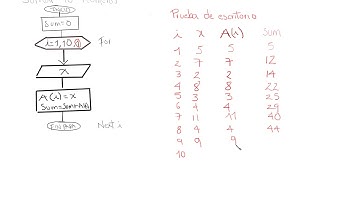 INICIO
Sum=0
i=1,10,1
For
x
A(i)=x
Sum=Sum+A(i)
FIN PARA
Next i
Prueba de escritorio
i x A(i) Sum
1 5 5 5
2 7 7 12
3 2 2 14
4 8 8 22
5 3 3 25
6 4 4 29
7 11 11 40
8 4 4 44
9 9 9
10